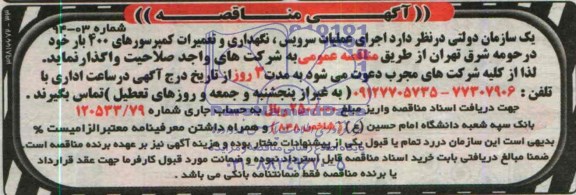 ((آگهــی منــاقصــه))
شماره ۰۳-۹۴
یک سازمان دولتی درنظر دارد اجرای عملیات سرویس ، نگهداری و تعمیرات کمپرسورهای ۴۰۰ بار خود
درحومه شرق تهران از طریق مناقصه عمومی به شرکت های واجد صلاحیت واگذار نماید.
لذا از کلیه شرکت های مجرب دعوت می شود به مدت ۳ روز از تاریخ درج آگهی درساعت اداری با
تلفن : ۷۷۳۰۷۹۰۶ - ۰۹۱۲۷۷۰۵۷۳۵ ( به غیراز پنجشنبه و جمعه و روزهای تعطیل ) تماس بگیرند .
جهت دریافت اسناد مناقصه واریز مبلغ ریال به حساب جاری شماره ۱۲۰۵۳۳/۷۹
بانک سپه شعبه دانشگاه امام حسین (ع) و همراه داشتن معرفینامه معتبر الزامیست %
بدیهی است این سازمان دررد تمام یا قبول یکی از پیشنهادات مختار بوده و هزینه آگهی نیز بر عهده برنده مناقصه است.
ضمنا مبالغ دریافتی بابت خرید اسناد مناقصه قابل استرداد نبوده و ضمانت مورد قبول کارفرما جهت عقد قرارداد
با برنده مناقصه فقط ضمانتنامه بانکی می باشد .